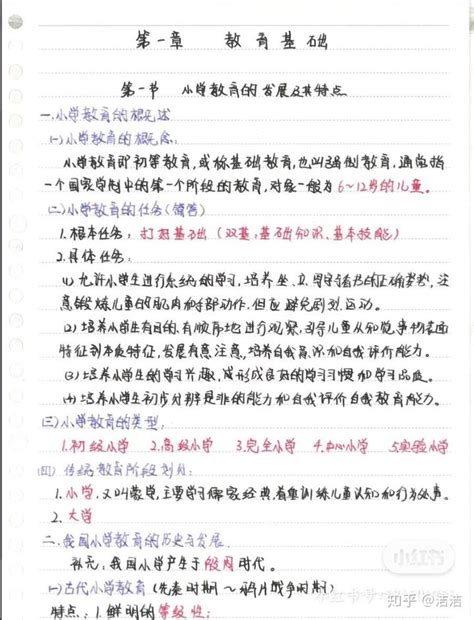 第一章 教育基础
第一节 小学教育的发展及其特点
一.小学教育的概述
(一)小学教育的概念:
小学教育即初等教育,或称基础教育,也叫强制教育,通常指
一个国家学制中的第一个阶段的教育,对象一般为6~12岁的儿童。
(二)小学教育的任务(简答)
1.根本任务:打好基础(双基:基础知识、基本技能)
2.具体任务:
(1)允许小学生进行系统的学习,培养坐、立、看书的正确姿势,注
意锻炼儿童的肌肉和部动作,但应避免剧烈运动。
(2)培养小学生有目的、有顺序地进行观察,引导儿童从知觉事物表面
特征到本质特征,发展有意注意,培养自我意识和自我评价能力。
(3)培养小学生的学习兴趣,成形成良好的学习习惯和学习品质。
(4)培养小学生初步分辨是非的能力和自我评价自我教育能力。
(三)小学教育的类型:
1.初级小学 2.高级小学 3.完全小学 4.中心小学 5.实验小学
(四)传统教育阶段划分:
1.小学,又叫蒙学,主要学习儒家经典,着重训练儿童认知和行为
2.大学
二.我国小学教育的历史与发展.
补充:我国小学产生于殷周时代。
(一)古代小学教育(先秦时期~鸦片战争时期)
特点:1.鲜明的等级性;
小红书
知乎 @洁洁